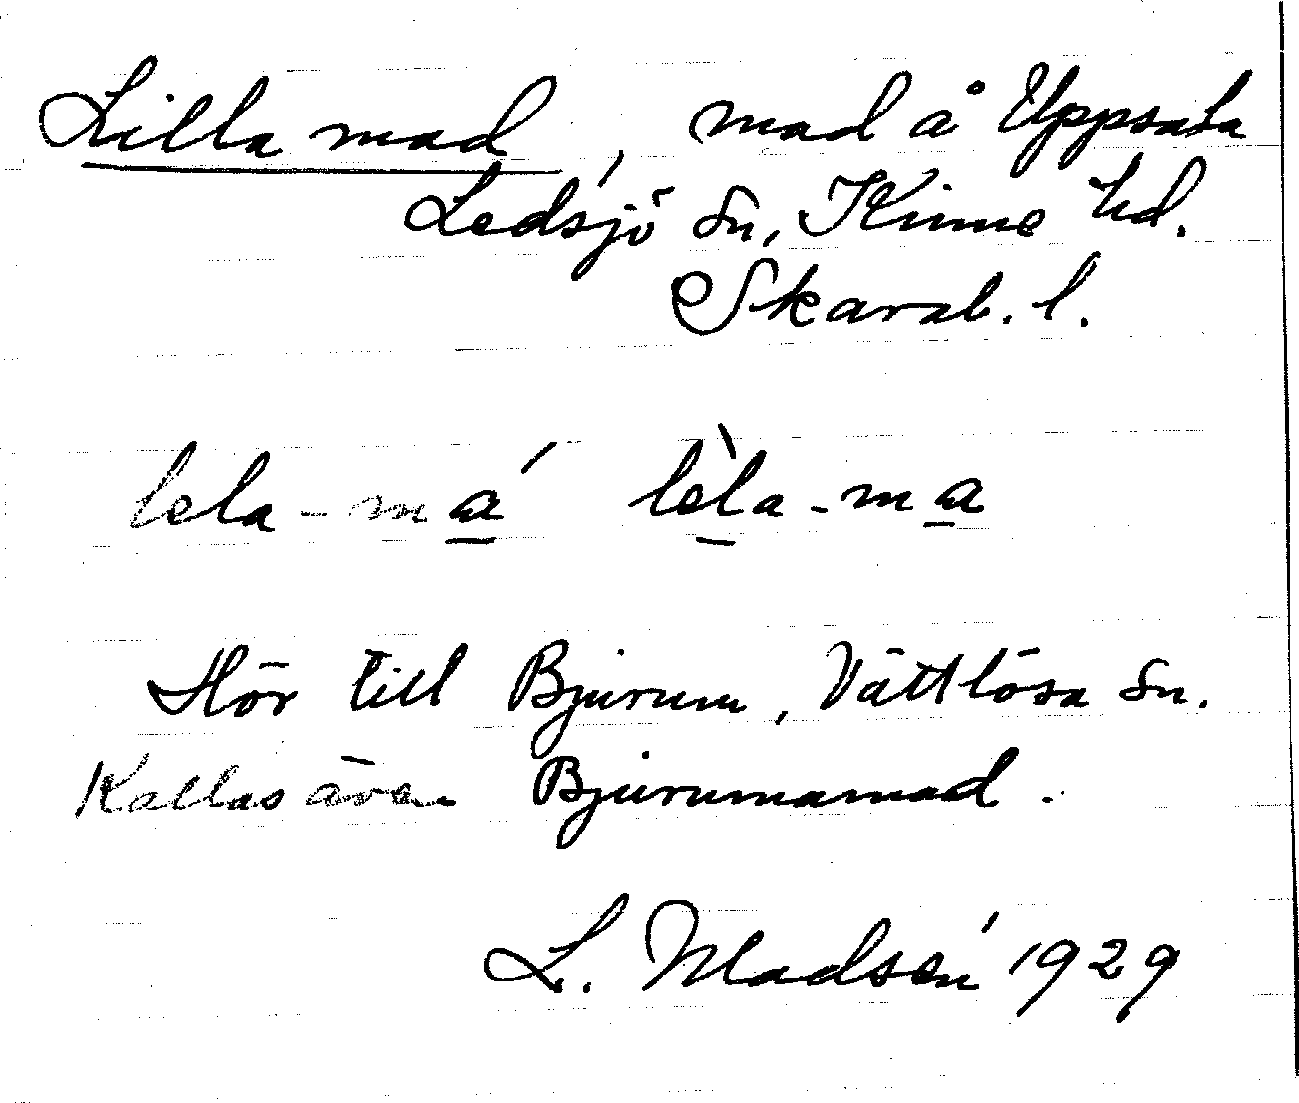 Lilla mad, mad å Uppsala
Ledsjö sn, Kinne hd.
Skarab. l.
lela-má lèla-ma
Hör till Bjurum, Vättlösa sn.
Kallas även Bjurumamad.
L. Madsén 1929